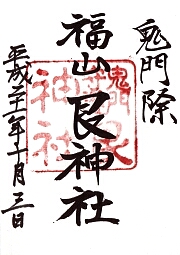 鬼門除
福山艮神社
平成二十一年十一月三日